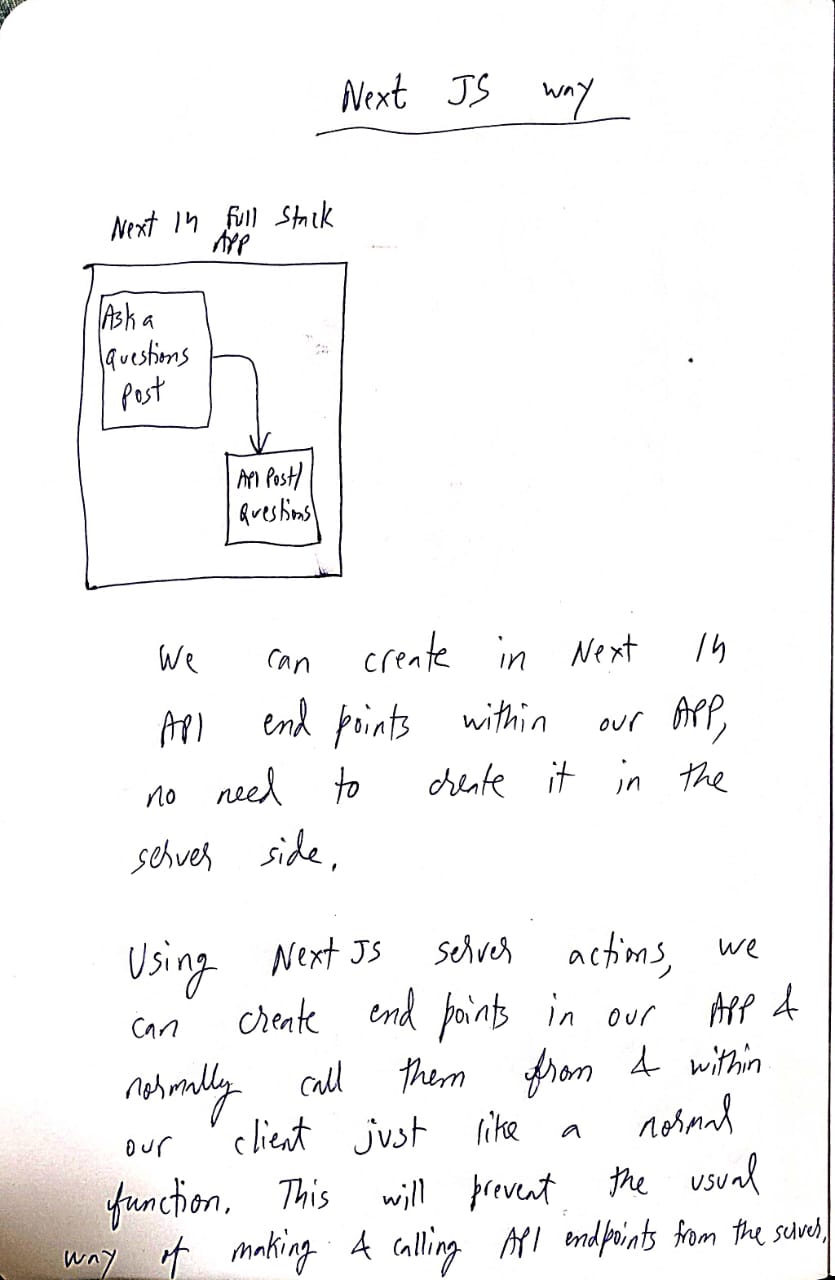 Next JS way
Next 14 Full Stack
App
Ask a
questions
Post
API Post/
Questions
We can create in Next 14
API end points within our APP,
no need to create it in the
server side.
Using Next JS server actions, we
can create end points in our APP &
normally call them from & within
our client just like a normal
function. This will prevent the usual
way of making & calling API endpoints from the server,